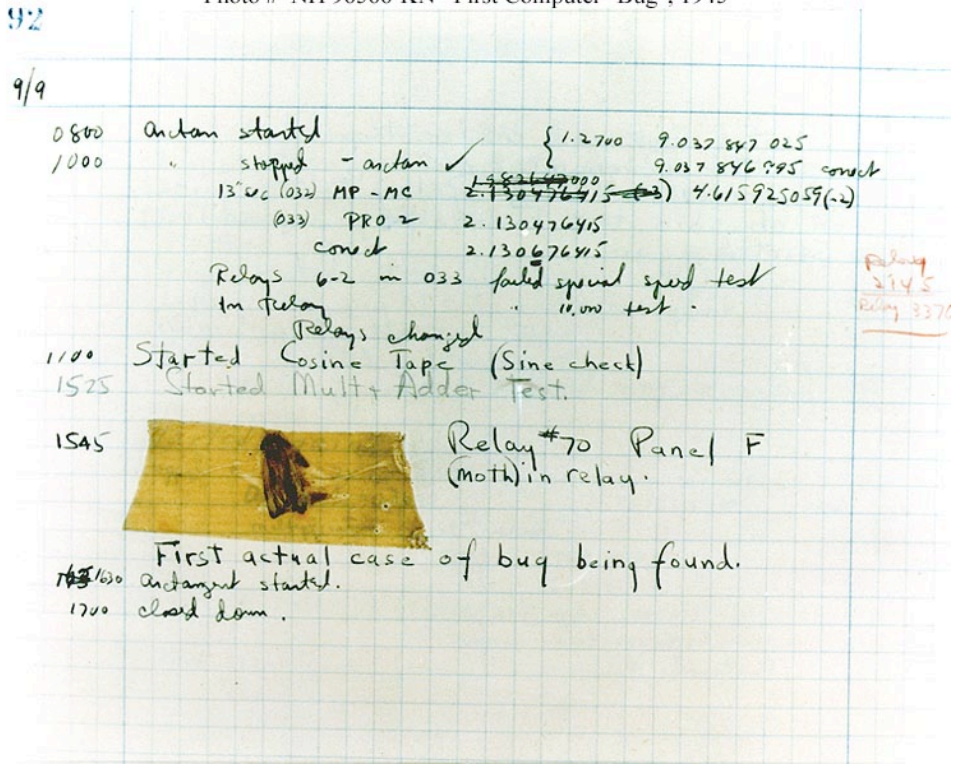 Photo # NH 96566-KN "First Computer "Bug", 1945
92
9/9
0800 Antan started { 1.2700 9.037 847 025
1000 " stopped - antan ✓ 9.037 846 995 conect
13" uc (032) MP - MC 1.982647000 2.130476415 (-3) 4.615925059(-2)
(033) PRO 2 2.130476415
conect 2.130676415
Relays 6-2 in 033 failed special speed test
In Relay " 10,000 test .
Relay
2145
Relay 3370
Relays changed
1100 Started Cosine Tape (Sine check)
1525 Started Mult + Adder Test.
1545 Relay #70 Panel F
(moth) in relay.
First actual case of bug being found.
1630 antangent started.
1700 closed down .